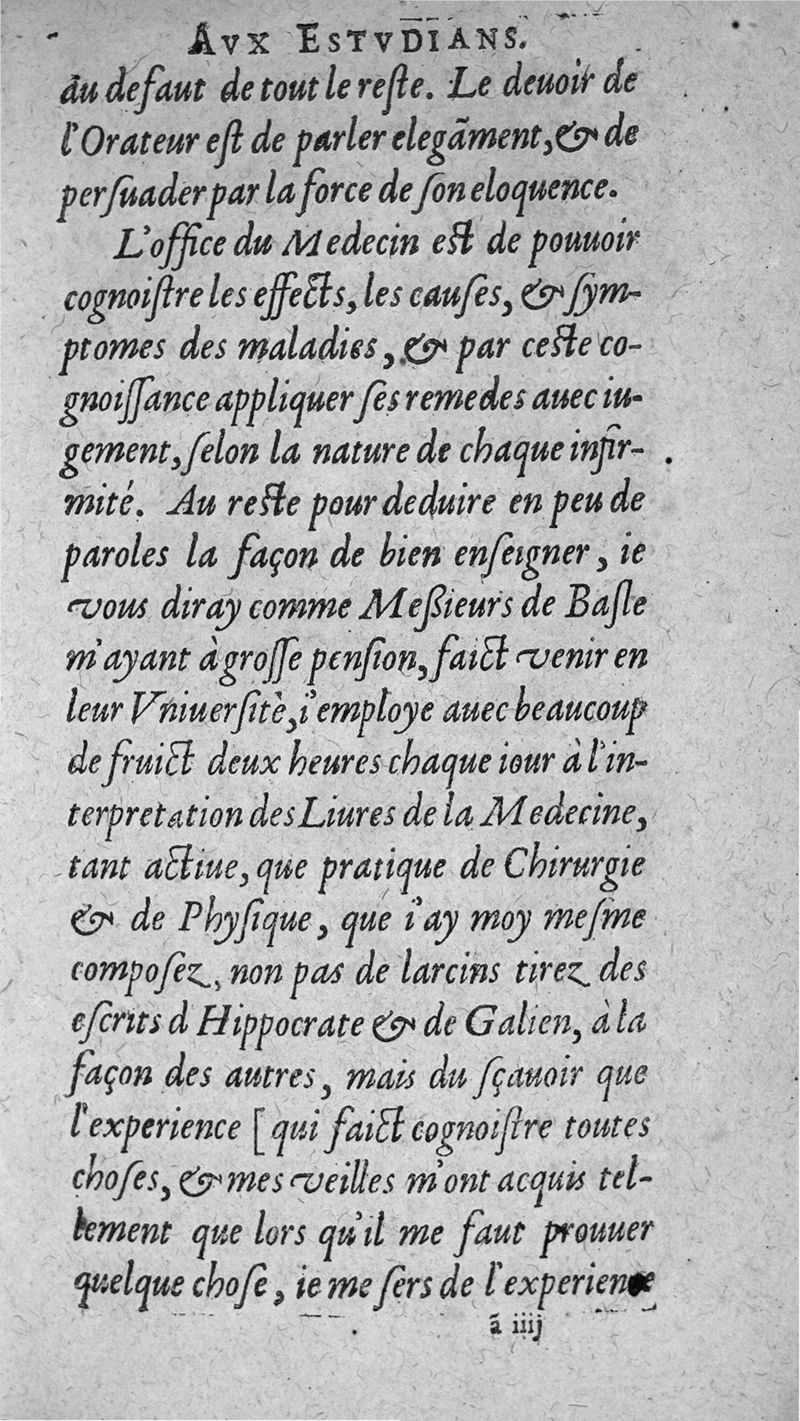 AVX ESTVDIANS.
au defaut de tout le reſte. Le deuoir de
l'Orateur eſt de parler elegãment, & de
perſuader par la force de ſon eloquence.
L'office du Medecin eſt de pouuoir
cognoiſtre les effects, les cauſes, & ſym-
ptomes des maladies, & par ceſte co-
gnoiſſance appliquer ſes remedes auec iu-
gement, ſelon la nature de chaque infir-
mité. Au reſte pour deduire en peu de
paroles la façon de bien enſeigner, ie
vous diray comme Meßieurs de Baſle
m'ayant à groſſe penſion, faict venir en
leur Vniuerſitè, i'employe auec beaucoup
de fruict deux heures chaque iour à l'in-
terpretation des Liures de la Medecine,
tant actiue, que pratique de Chirurgie
& de Phyſique, que i'ay moy meſme
compoſez, non pas de larcins tirez des
eſcrits d Hippocrate & de Galien, à la
façon des autres, mais du ſçauoir que
l'experience [qui faict cognoiſtre toutes
choſes, & mes veilles m'ont acquis tel-
lement que lors qu'il me faut prouuer
quelque choſe, ie me ſers de l'experience
ã iiij